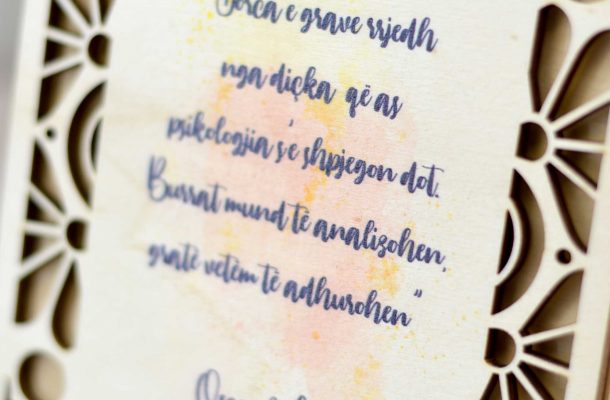 Forca e grave rrjedh
nga diçka që as
psikologjia s'e shpjegon dot.
Burrat mund të analizohen,
gratë vetëm të adhurohen"